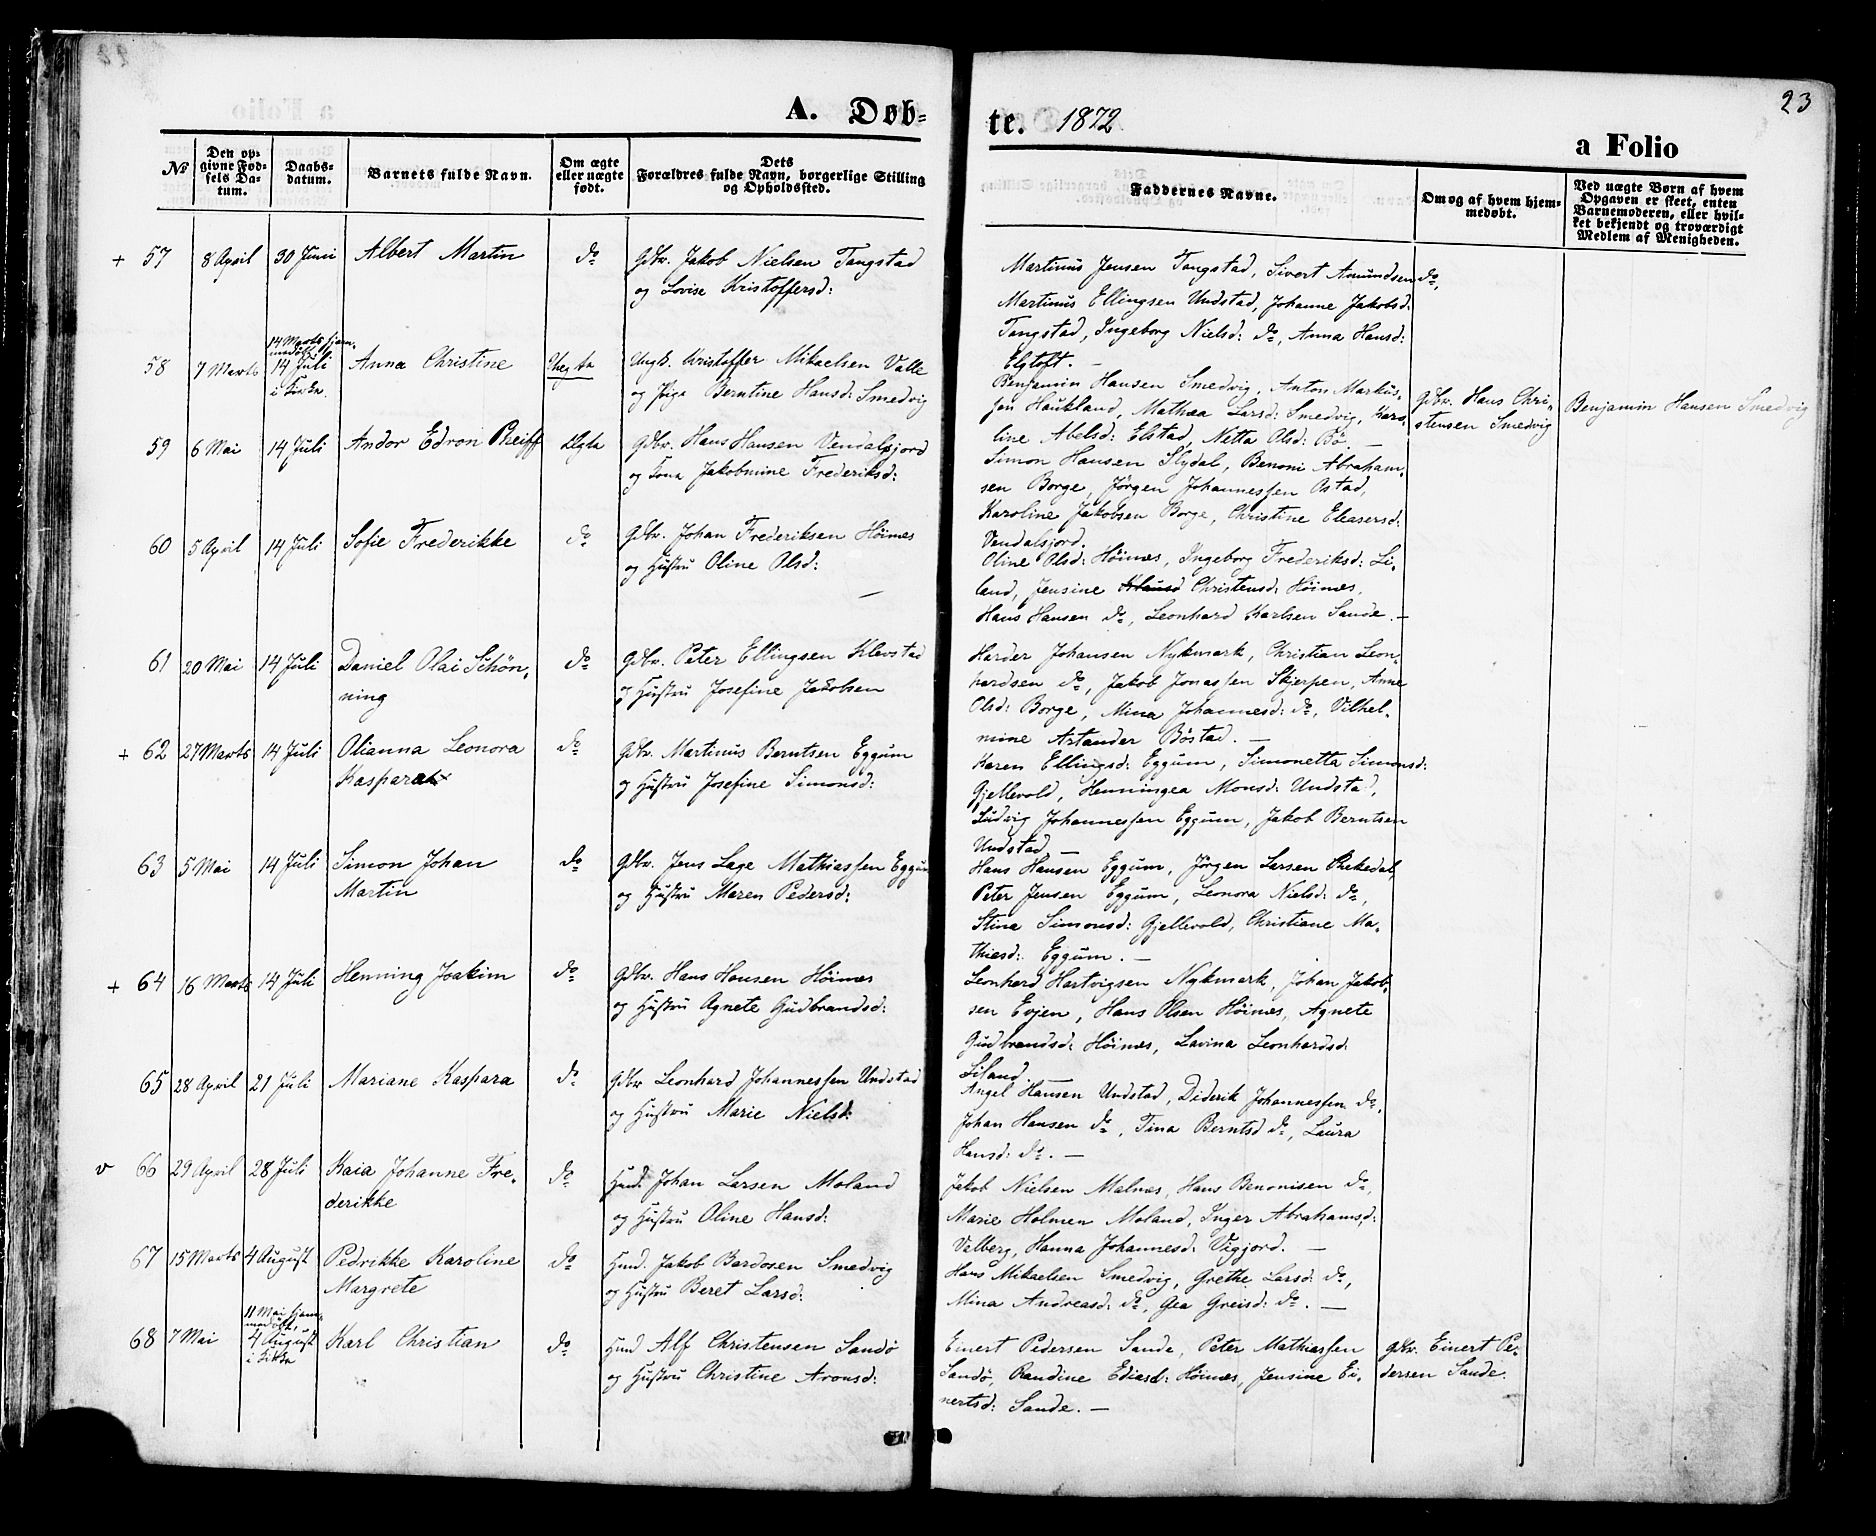 A. Døb-
te. 1872
23
a Folio
№
Den op-
givne Fød-
sels Da-
tum.
Daabs-
datum.
Barnets fulde Navn.
Om ægte
eller uægte
født.
Dets
Forældres fulde Navn, borgerlige Stilling
og Opholdsted.
Faddernes Navne.
Om og af hvem hjem-
medøbt.
Ved uægte Børn af hvem
Opgaven er skeet, enten
Barnemoderen, eller hvil-
ket bekjendt og troværdigt
Medlem af Menigheden.
+ 57 8 April 30 Juni Albert Martin do Gdbr. Jakob Nielsen Tangstad
og Lovise Kristoffersd:
Martinus Jensen Tangstad, Sivert Amundsen do,
Martinus Ellingsen Undstad, Johanne Jakobsd:
Tangstad, Ingeborg Nielsd: do, Anna Hansd:
Elgtoft. —
58 7 Marts 14 Marts hjem-
medøbt
14 Juli
i Kirke.
Anna Christine Uægte Ungk. Kristoffer Mikaelsen Valle
og Pige Berntine Hansd: Smedvig
Benjamin Hansen Smedvig, Anton Markus-
sen Haukland, Mathea Larsd: Smedvig, Karo-
line Abelsd: Elstad, Netta Olsd: Bø. —
Gdbr. Hans Chri-
stensen Smedvig
Benjamin Hansen Smedvig
59 6 Mai 14 Juli Andor Edron Reiff Ægte Gdbr. Hans Hansen Vendalsjord
og Kona Jakobmine Frederiksd:
Simon Hansen Slydal, Benoni Abraham-
sen Borge, Jørgen Johannessen Ostad,
Karoline Jakobsen Borge, Christine Eleasersd:
Vendalsjord.
60 5 April 14 Juli Sofie Frederikke do Gdbr. Johan Frederiksen Höines
og Hustru Oline Olsd:
—
Oline Olsd: Höines, Ingeborg Frederiksd: Li-
land, Jensine Christensd: Höines,
Hans Hansen do, Leonhard Karlsen Sande. —
61 20 Mai 14 Juli Daniel Olai Schön-
ning
do Gdbr. Peter Ellingsen Klevstad
og Hustru Josefine Jakobsen
Harder Johansen Nykmark, Christian Leon-
hardsen do, Jakob Jonassen Skjerpen, Anne
Olsd: Borge, Mina Johannesd: do, Vilhel-
mine Artander Böstad. —
+ 62 27 Marts 14 Juli Olianna Leonora
Kaspara
do Gdbr. Martinus Berntsen Eggum
og Hustru Josefine Simonsd:
Karen Ellingsd: Eggum, Simonetta Simonsd:
Gjellevold, Henningea Monsd: Undstad,
Ludvig Johannessen Eggum, Jakob Berntsen
Undstad —
63 5 Mai 14 Juli Simon Johan
Martin
do Gdbr. Jens Lage Mathiassen Eggum
og Hustru Maren Pedersd:
Hans Hansen Eggum, Jörgen Larsen Rekedal,
Peter Jensen Eggum, Leonora Nielsd: do,
Stina Simonsd: Gjellevold, Christiane Ma-
thiesd: Eggum. —
+ 64 16 Marts 14 Juli Henning Joakim do Gdbr. Hans Hansen Höines
og Hustru Agnete Gudbrandsd:
Leonhard Hartvigsen Nykmark, Johan Jakob-
sen Evjen, Hans Olsen Höines, Agnete
Gudbrandsd: Höines, Lavina Leonhardsd:
Liland
65 28 April 21 Juli Mariane Kaspara do Gdbr Leonhard Johannessen Undstad
og Hustru Marie Nielsd:
Angel Hansen Undstad, Diderik Johannessen do,
Johan Hansen do, Tina Berntsd do, Laura
Hansd: do. —
v 66 29 April 28 Juli Kaia Johanne Fre-
derikke
do Hmd: Johan Larsen Moland
og Hustru Oline Hansd:
Jakob Nielsen Malnes, Hans Benonisen do,
Marie Holmen Moland, Inger Abrahamsd:
Valberg, Hanna Johannesd: Vigjord. —
67 15 Marts 4 August Pedrikke Karoline
Margrete
do Hmd. Jakob Bardosen Smedvig
og Hustru Beret Larsd:
Hans Mikaelsen Smedvig, Grethe Larsd: do,
Mina Andreasd: do, Gea Greisd: do. —
68 7 Mai 11 Mai hjem-
medöbt,
4 August
i Kirke
Karl Christian do Hmd Alf Christensen Sandö
og Hustru Christine Aronsd:
Einert Pedersen Sande, Peter Mathiassen
Sandö, Randine Ediasd: Höines, Jensine Ei-
nertsd: Sande. —
Gdbr. Einert Pe-
dersen Sande.